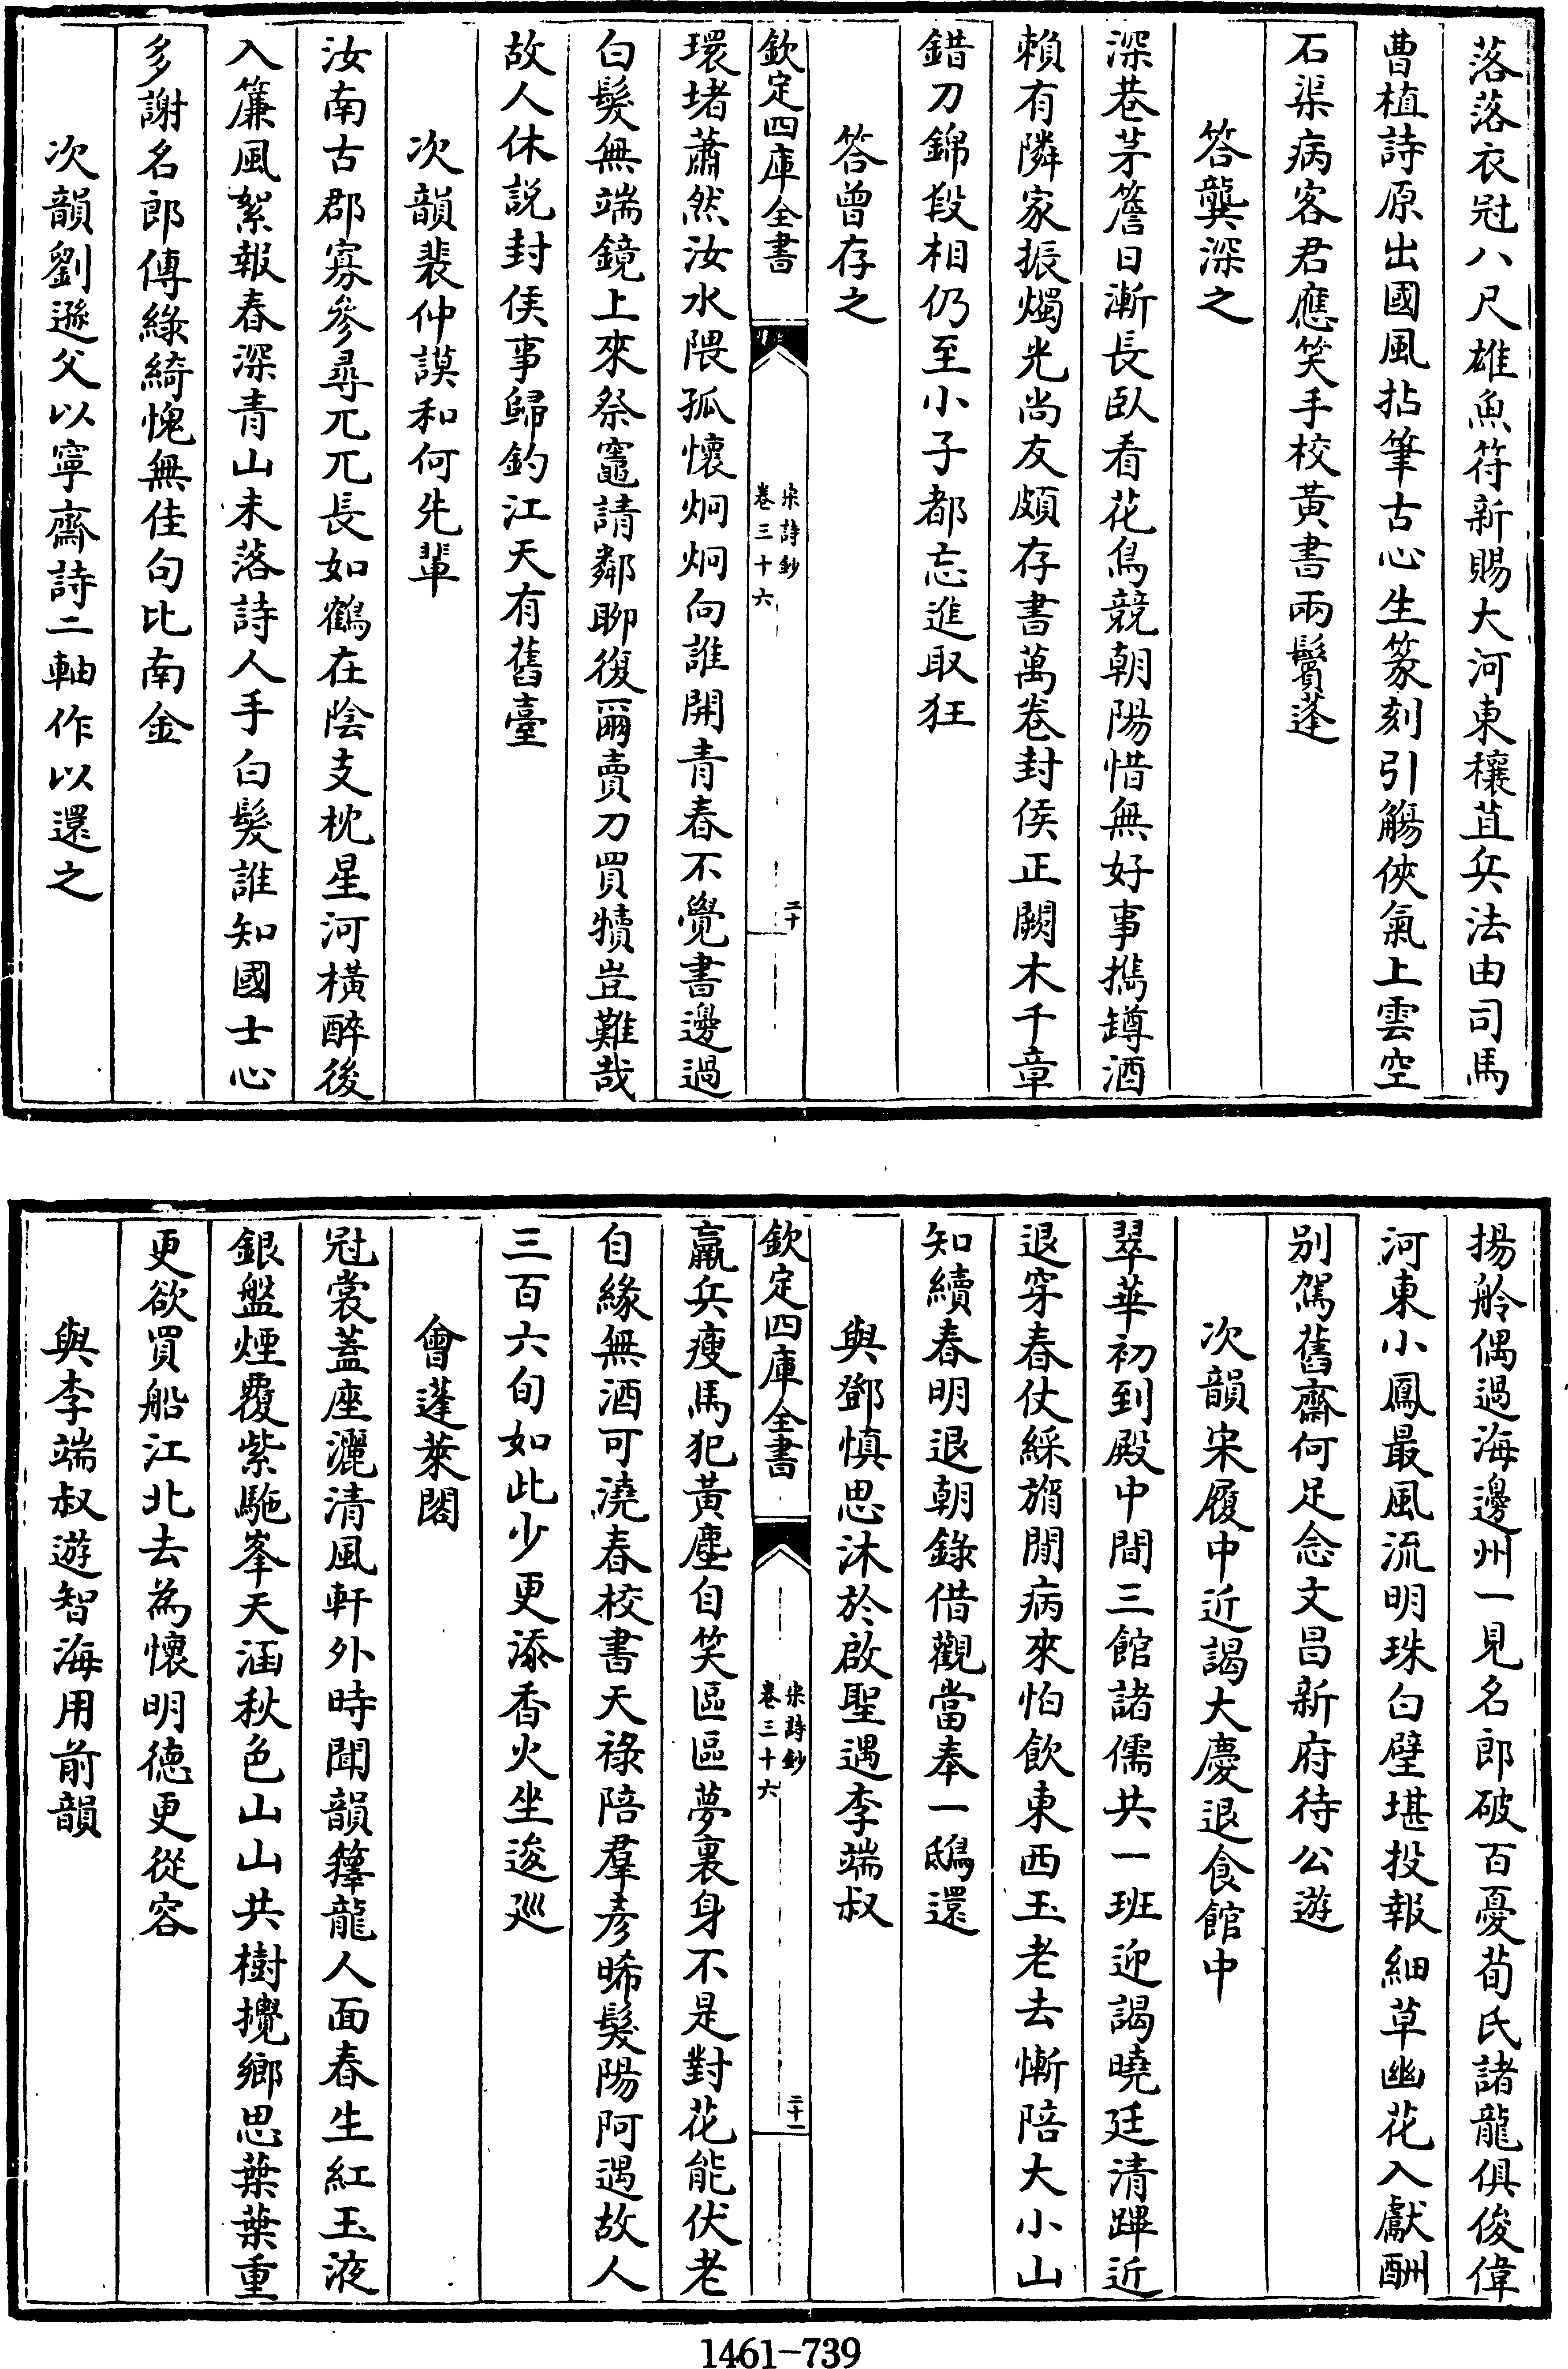 落落衣冠八尺雄魚符新賜大河東穰苴兵法由司馬
曹植詩原出國風拈筆古心生篆刻引觴俠氣上雲空
石渠病客君應笑手校黃書兩鬢蓬
答龔深之
深巷茅簷日漸長臥看花鳥競朝陽惜無好事攜罇酒
賴有隣家振燭光尚友頗存書萬卷封侯正闕木千章
錯刀錦段相仍至小子都忘進取狂
答曾存之
欽定四庫全書
宋詩鈔
卷三十六
二十
環堵蕭然汝水隈孤懷炯炯向誰開青春不覺書邊過
白髮無端鏡上來祭竈請鄰聊復爾賣刀買犢豈難哉
故人休説封侯事歸釣江天有舊臺
次韻裴仲謨和何先輩
汝南古郡寡參尋兀兀長如鶴在陰支枕星河橫醉後
入簾風絮報春深青山未落詩人手白髮誰知國士心
多謝名郎傳綠綺愧無佳句比南金
次韻劉遜父以寧齋詩二軸作以還之
揚舲偶過海邊州一見名郎破百憂荀氏諸龍俱俊偉
河東小鳳最風流明珠白璧堪投報細草幽花入獻酬
別駕舊齋何足念文昌新府待公遊
次韻宋履中近謁大慶退食館中
翠華初到殿中間三館諸儒共一班迎謁曉廷清蹕近
退穿春仗綵旓閒病來怕飲東西玉老去慚陪大小山
知續春明退朝錄借觀當奉一鴟還
與鄧慎思沐於啟聖遇李端叔
欽定四庫全書
宋詩鈔
卷三十六
二十一
羸兵瘦馬犯黃塵自笑區區夢裏身不是對花能伏老
自緣無酒可澆春校書天祿陪羣彥晞髮陽阿遇故人
三百六旬如此少更添香火坐逡巡
會蓬萊閣
冠裳蓋座灑清風軒外時聞韻籜龍人面春生紅玉液
銀盤煙覆紫駞峯天涵秋色山山共樹攪鄉思葉葉重
更欲買船江北去為懷明德更從容
與李端叔遊智海用前韻
1461-739